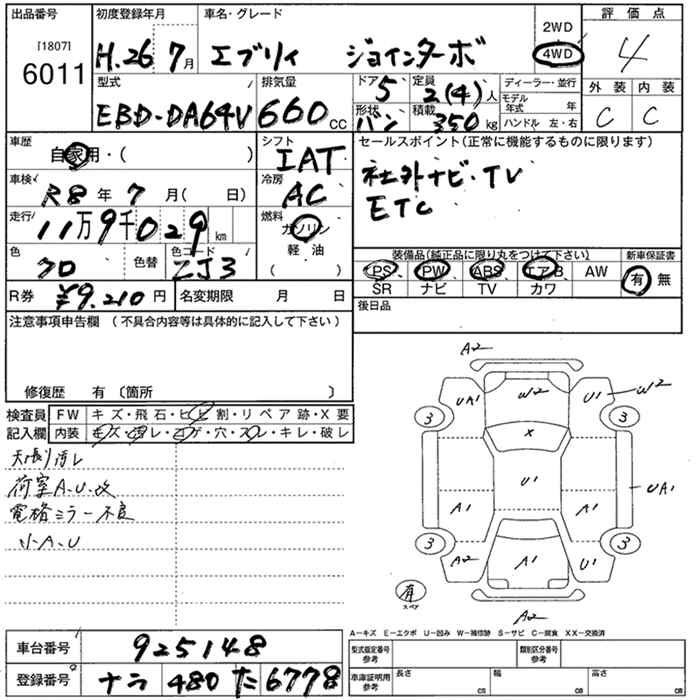 出品番号
［1807］
6011
初度登録年月
H.26 7月
車名・グレード
エブリィ ジョインターボ
2WD
4WD
評価点
4
外装 内装
C C
型式
EBD-DA64V
排気量
660cc
ドア 5
形状 バン
定員 2(4)人
積載 350kg
ディーラー・並行
モデル年式 年
ハンドル 左・右
車歴
自家用・( )
車検
R8年 7月( 日)
走行
11万9千029km
色
クロ
色替
色コード
ZJ3
シフト
IAT
冷房
AC
燃料
ガソリン
軽油
( )
セールスポイント(正常に機能するものに限ります)
社外ナビ・TV
ETC
装備品(純正品に限り丸をつけて下さい)
新車保証書
PS PW ABS エアB AW
有 無
SR ナビ TV カワ
R券 ¥9.210円
名変期限 月 日
後日品
注意事項申告欄 (不具合内容等は具体的に記入して下さい)
修復歴 有〔箇所 〕
検査員
記入欄
FW キズ・飛石・ヒビ割・リペア跡・X要
内装 キズ・汚レ・コゲ・穴・スレ・キレ・破レ
天張リ汚レ
荷室A.U.改
電格ミラー不良
小A.U
A2
UA1 W2 U1 W2
3 3
X
U1
UA1
A1 A1
3 3
A2 A1 U1
有
スペア
A2
A－キズ E－エクボ U－凹み W－補修跡 S－サビ C－腐食 XX－交換済
車台番号 925148
登録番号 ナラ 480 た 6778
型式指定番号
参考
類別区分番号
参考
車庫証明用
参考
長さ cm
幅 cm
高さ cm